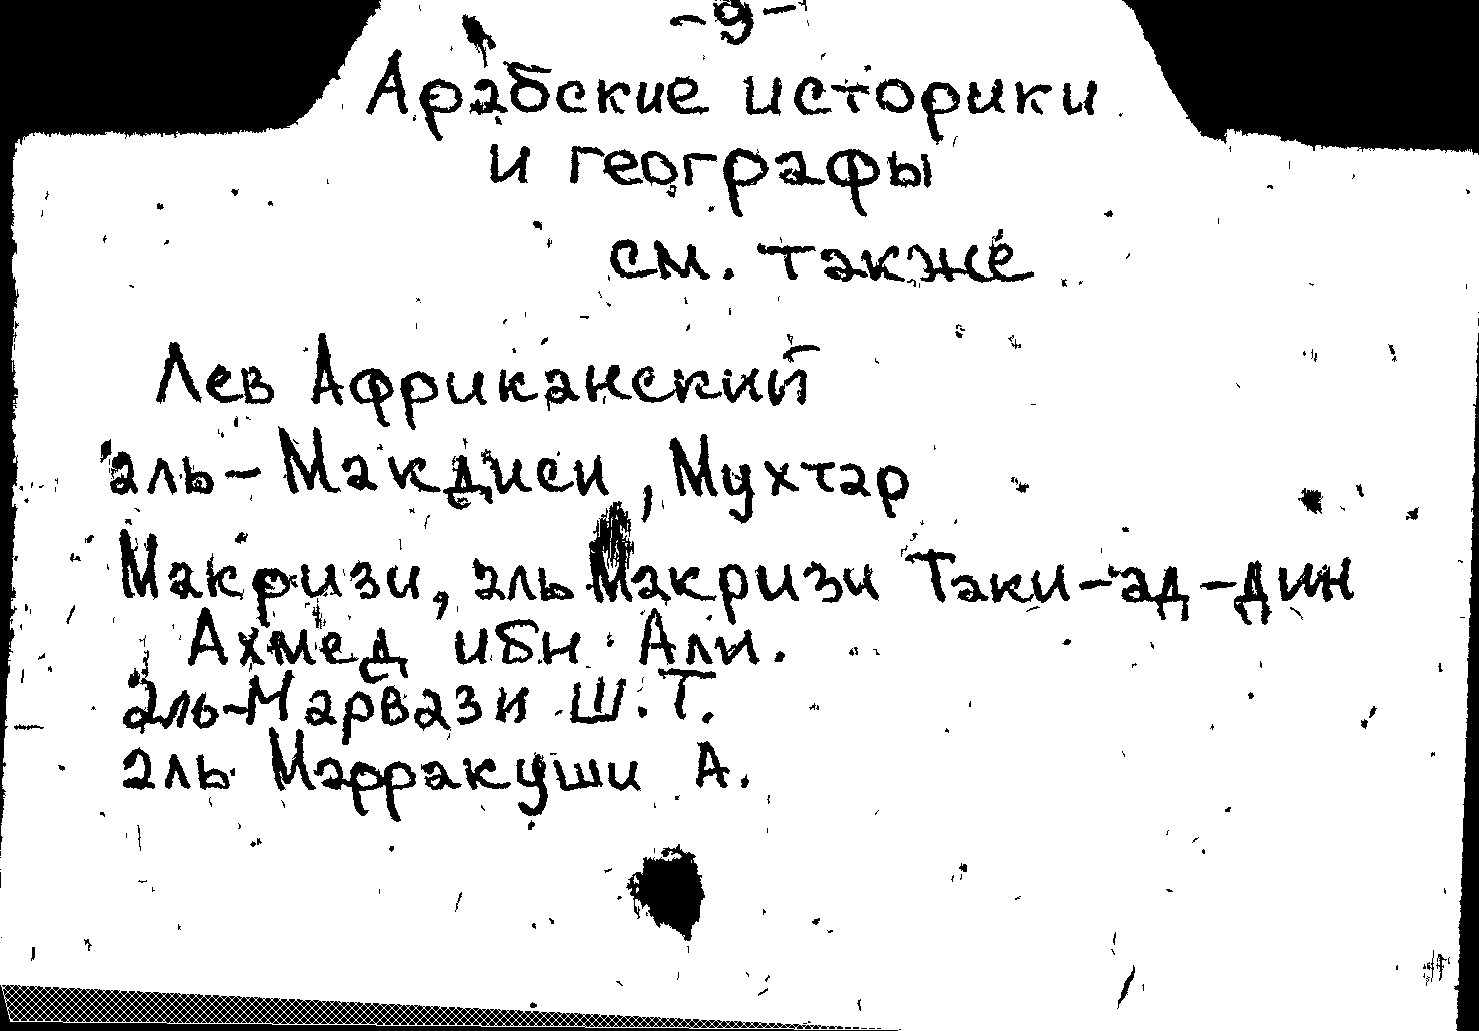 -9-
Арабские историки
и географы
см. также
Лев Африканский
аль-Макдиси, Мухтар
Макризи, аль Макризи Таки-ад-дин
Ахмед ибн Али.
аль-Марвази Ш.Т.
аль Марракуши А.